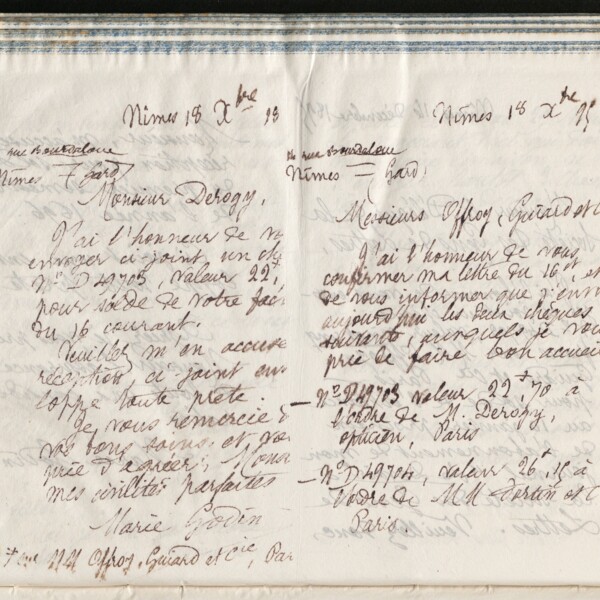 Nîmes 18 Xbre 93
rue Bourdaloue
Nîmes = Gard
Monsieur Derogy,
J'ai l'honneur de vo
envoyer ci-joint, un ch
No D 49703, valeur 22,
pour solde de votre fac
du 16 courant.
Veuillez m'en accuse
réception, ci-joint env
loppe toute prête.
Je vous remercie d
vos bons soins, et vou
prie d'agréer, Mons
mes civilités parfaites
Marie Godin
MM Offroy, Guiard et Cie, Par
Nîmes 18 Xbre
rue Bourdaloue
Nîmes = Gard
Messieurs Offroy, Guiard et C
J'ai l'honneur de vous
confirmer ma lettre du 16 et, et
de vous informer que j'envo
aujourd'hui les deux chèques
suivants, auxquels je vou
prie de faire bon accueil
- No D 49703 valeur 22f,70 à
l'ordre de M. Derogy,
opticien, Paris
- No D 49704, valeur 26f,15 à
l'ordre de MM Fortin et C
Paris